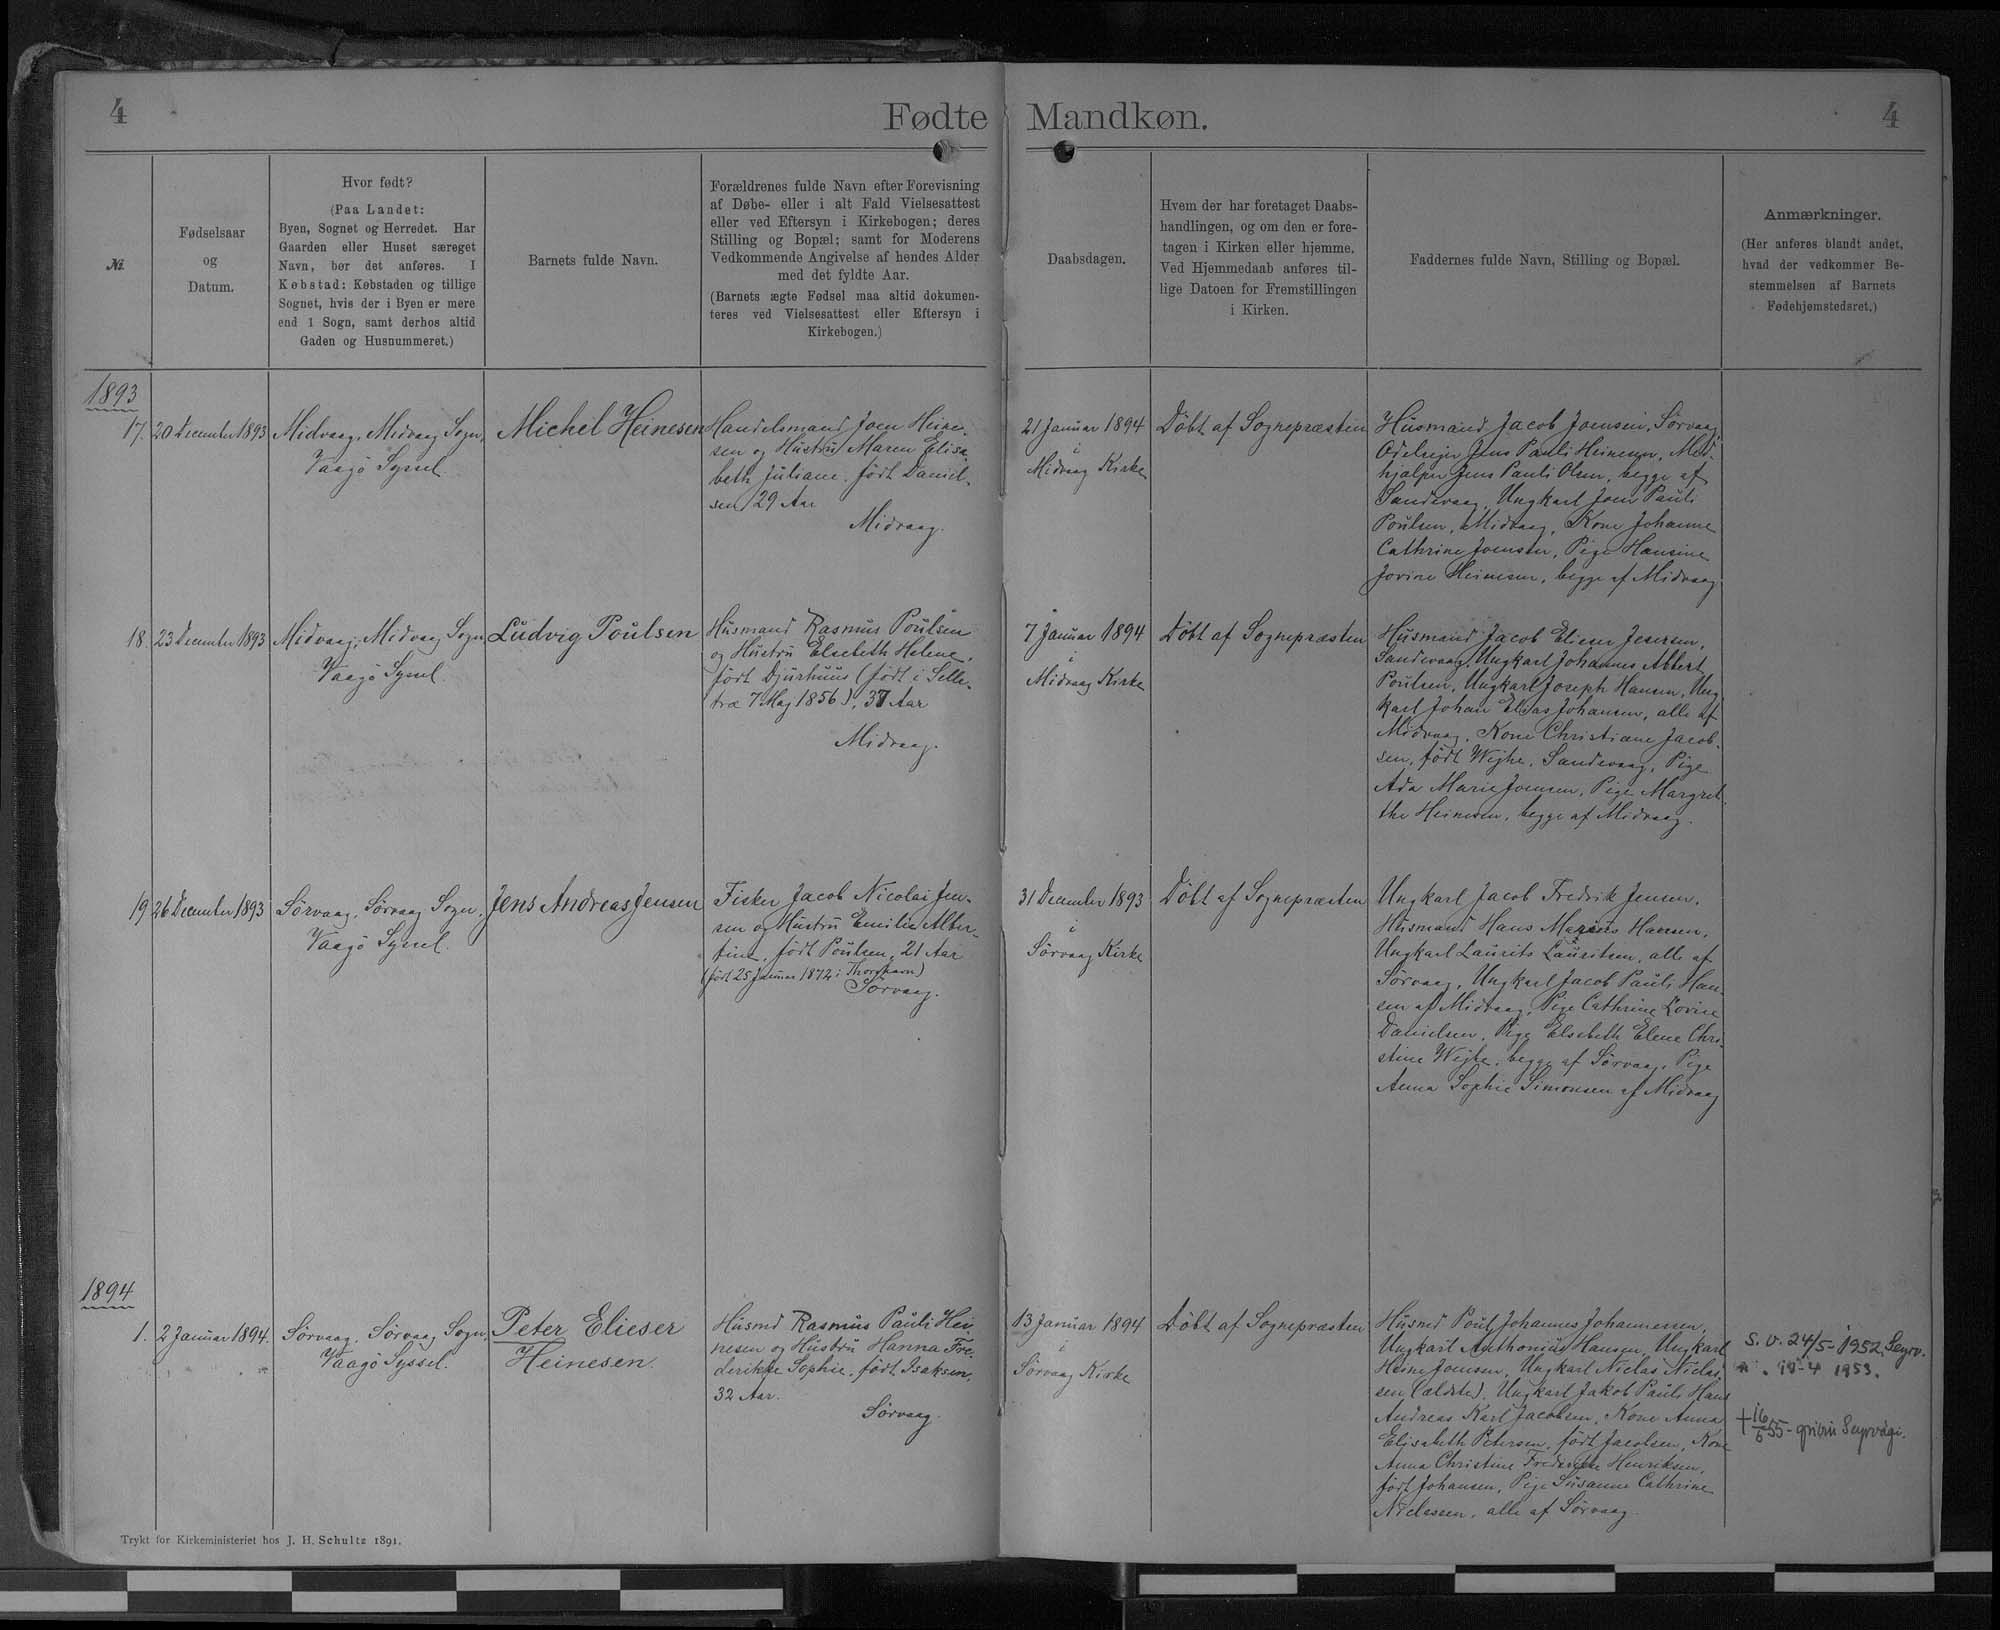 4
Fødte Mandkøn.
4
№
Fødselsaar
og
Datum.
Hvor født?
(Paa Landet:
Byen, Sognet og Herredet. Har
Gaarden eller Huset særeget
Navn, bør det anføres. I
Købstad: Købstaden og tillige
Sognet, hvis der i Byen er mere
end 1 Sogn, samt derhos altid
Gaden og Husnummeret.)
Barnets fulde Navn.
Forældrenes fulde Navn efter Forevisning
af Døbe- eller i alt Fald Vielsesattest
eller ved Eftersyn i Kirkebogen; deres
Stilling og Bopæl; samt for Moderens
Vedkommende Angivelse af hendes Alder
med det fyldte Aar.
(Barnets ægte Fødsel maa altid dokumen-
teres ved Vielsesattest eller Eftersyn i
Kirkebogen.)
Daabsdagen.
Hvem der har foretaget Daabs-
handlingen, og om den er fore-
tagen i Kirken eller hjemme.
Ved Hjemmedaab anføres til-
lige Datoen for Fremstillingen
i Kirken.
Faddernes fulde Navn, Stilling og Bopæl.
Anmærkninger.
(Her anføres blandt andet,
hvad der vedkommer Be-
stemmelsen af Barnets
Fødehjemstedsret.)
1893
17.
20 December 1893
Midvaag, Midvaag Sogn,
Vaagø Syssel.
Michel Heinesen
Handelsmand Joen Heine-
sen og Hustru Maren Elisa-
beth Juliane, født Daniel-
sen, 29 Aar
Midvaag.
21 Januar 1894
i
Midvaag Kirke
Døbt af Sognepræsten
Husmand Jacob Joensen, Sørvaag,
Odelsejer Jens Pauli Heinesen, Med-
hjælper Jens Pauli Olsen, begge af
Sandevaag, Ungkarl Joen Pauli
Poulsen, Midvaag, Kone Johanne
Cathrine Joensen, Pige Hansine
Jovine Heinesen, begge af Midvaag
18.
23 December 1893
Midvaag, Midvaag Sogn
Vaagø Syssel.
Ludvig Poulsen
Husmand Rasmus Poulsen
og Hustru Elsebeth Helene,
født Djurhuus (født i Selle-
træ 7 Maj 1856), 37 Aar
Midvaag.
7 Januar 1894
i
Midvaag Kirke
Døbt af Sognepræsten
Husmand Jacob Elieser Jesersen,
Sandevaag, Ungkarl Johannes Abbert
Poulsen, Ungkarl Joseph Hansen, Ung-
karl Johan Elias Johansen, alle af
Midvaag, Kone Christiane Jacob-
sen, født Wejhe, Sandevaag, Pige
Ada Marie Joensen, Pige Margret-
the Heinesen, begge af Midvaag.
19
26 December 1893
Sørvaag, Sørvaag Sogn,
Vaagø Syssel.
Jens Andreas Jensen
Fisker Jacob Nicolai Jen-
sen og Hustru Emilie Alber-
tine, født Poulsen, 21 Aar
(født 25 Januar 1872 i Thorshavn)
Sørvaag.
31 December 1893
i
Sørvaag Kirke
Døbt af Sognepræsten
Ungkarl Jacob Fredrik Jensen,
Husmand Hans Marius Hansen,
Ungkarl Laurits Lauritsen, alle af
Sørvaag, Ungkarl Jacob Pauli Han-
sen af Midvaag, Pige Cathrine Lovise
Danielsen, Pige Elsebeth Elene Chri-
stine Wejhe, begge af Sørvaag, Pige
Anna Sophie Simonsen af Midvaag
1894
1.
2 Januar 1894.
Sørvaag, Sørvaag Sogn,
Vaagø Syssel.
Peter Elieser
Heinesen.
Husmd Rasmus Pauli Hei-
nesen og Hustru Hanna Fre-
derikke Sophie, født Isaksen,
32 Aar.
Sørvaag.
13 Januar 1894
i
Sørvaag Kirke
Døbt af Sognepræsten
Husmd Poul Johannes Johannessen,
Ungkarl Anthonius Hansen, Ungkarl
Heine Joensen, Ungkarl Niclas Niclas-
sen (ældste), Ungkarl Jakob Pauli Hans
Andreas Karl Jacobsen, Kone Anna
Elisabeth Petersen, født Jacobsen, Kone
Anna Christine Frederikke Henriksen,
født Johansen, Pige Susanne Cathrine
Niclassen, alle af Sørvaag.
S. V. 24/5-1952. Seyrv.
-4 1953.
+ 16/6 55 - Seyrvági.
Trykt for Kirkeministeriet hos J. H. Schultz 1891.